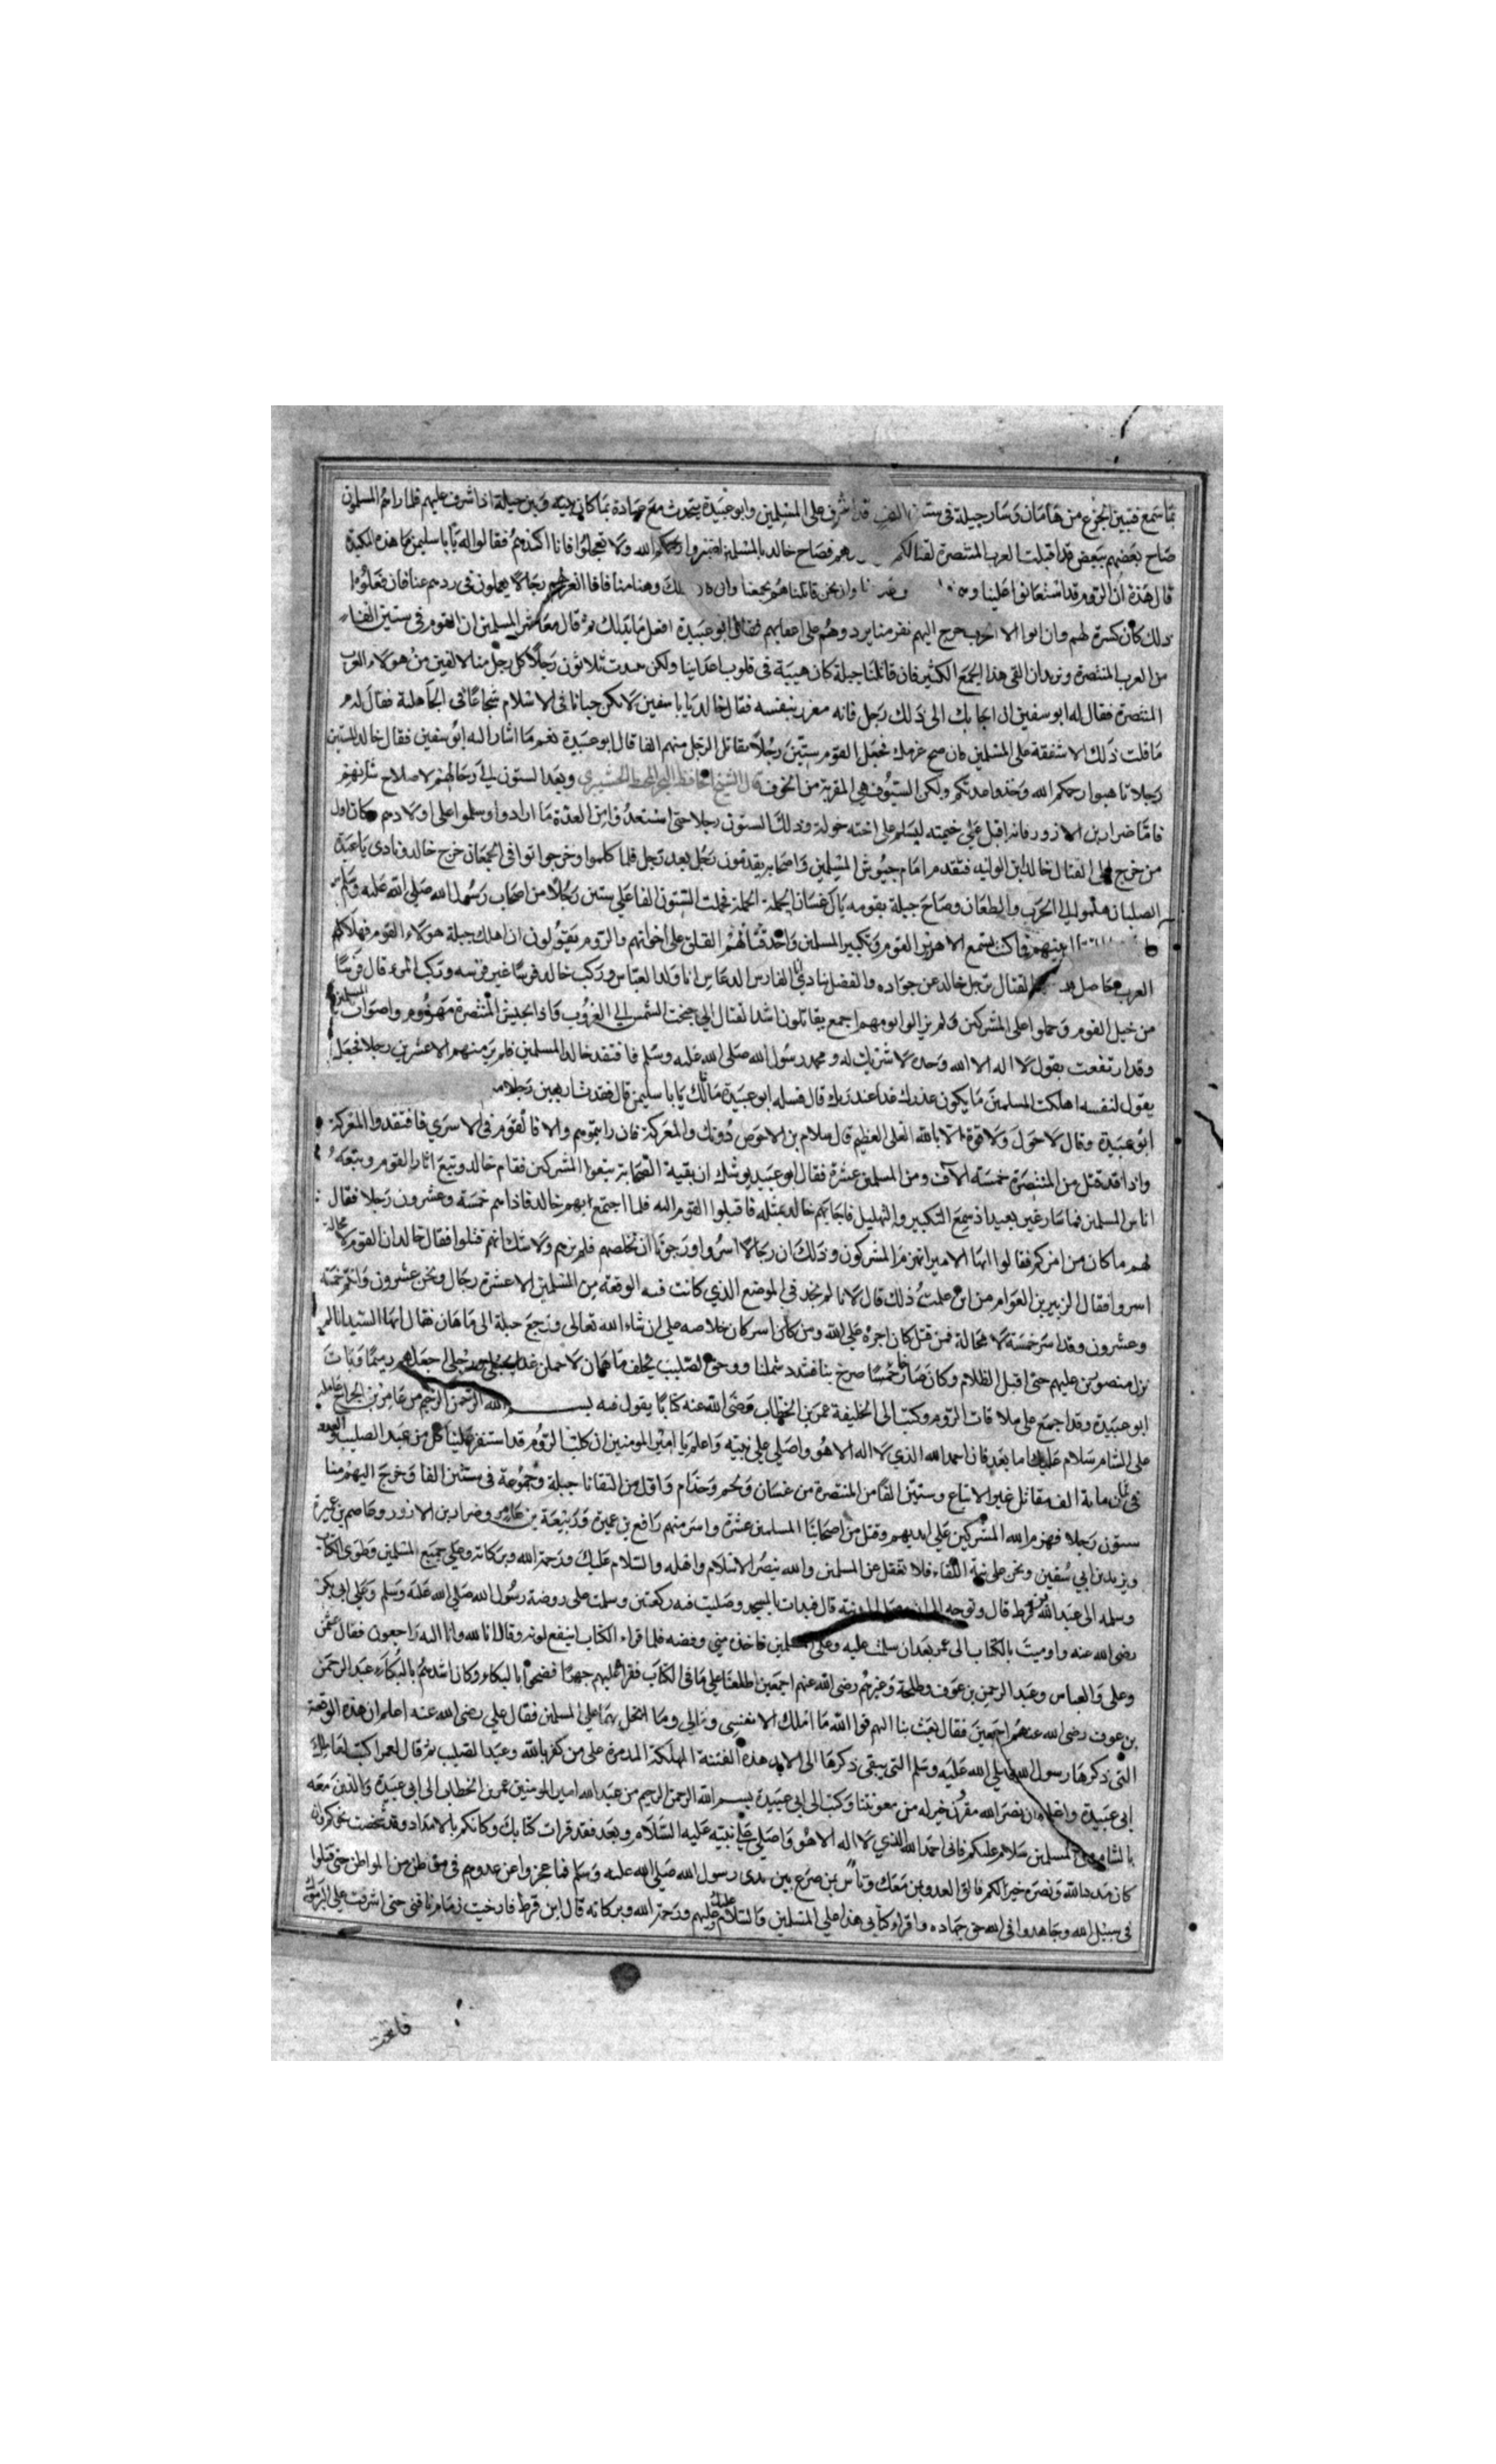 بما سمع فتبين الجزع من هامان وسار جبلة في ستين الف قد اشرف على المسلمين وابو عبيدة يتحدث مع عبادة بما كان بينه وبين جبلة اذا اشرف عليهم فلما راهم المسلمون
صاح بعضهم ببعض قد اقبلت العرب المتنصرة لقتالكم فصاح خالد بالمسلمين اصبروا رحمكم الله ولا تعجلوا فانا اكيدهم فقالوا له يا با سليمن ما هذه المكيدة
قال هذة ان الروم قد استعانوا علينا وان نحن قاتلناهم بجمعنا وهنا منا رجالا يعملون في ردهم عنا فان فعلوا
ذلك كان كسرة لهم وان ابوا الا الحرب خرج اليهم نفر منا يردوهم على اعقابهم فقال ابو عبيدة افعل ما بدالك ثم قال معاشر المسلمين ان القوم في ستين الف فارس
من العرب المتنصرة ونريد ان القى هذا الجمع الكثير فان قاتلنا جبلة كان هيبة في قلوب اعداينا ولكن ثلاثون رجلا كل رجل منا لالفين من هولاء العرب
المتنصرة فقال له ابو سفين ان اجابك الى ذلك رجل فانه مغرر بنفسه فقال خالد يا با سفين لا تكن جبانا في الاسلام شجاعا في الجاهلية فقال له
ما قلت ذلك الا شفقة على المسلمين فان صح عزمك فجعل القوم ستين رجلا يقاتل الرجل منهم الفا قال ابو عبيدة نعم ما اشار اليه ابو سفين فقال خالد للستين
رجلا تاهبوا رحمكم الله وخذوا عدتكم ولكن السيوف هي المقربة من الخوف قال الشيخ الحافظ وبعد الستون الي رحالهم لاصلاح شانهم
فاما ضرار بن الازور فانه اقبل على خيمته ليسلم على اخته خولة وكذلك الستون رجلا حتى استعدوا من العدة ما ارادوا وسلموا على اولادهم وكان اول
من خرج الى القتال خالد بن الوليد فتقدم امام جيوش المسلمين واصحابه يقدمون رجل بعد رجل فلما كلموا وخرجوا توافى الجمعان خرج خالد ونادى يا عبدة
الصلبان هلموا الي الحرب والطعان وصاح جبلة بقومه يال غسان الحملة الحملة فحملت الستون الفا على ستين رجلا من اصحاب رسول الله صلى الله عليه وسلم
بينهم فما كنت تسمع الا هرير القوم وتكبير المسلمين على اخوانهم والروم يقولون ان اهلك جبلة هولاء القوم فهلاككم
العرب حاصل القتال ترجل خالد عن جواده والفضل ينادي انا الفارس الدعاس انا ولد العباس وركب خالد فرسا غير فرسه وركب المرقال فرسا
من خيل القوم وحملوا على المشركين ولم يزالوا يومهم اجمع يقاتلون اشد القتال الي جنحت الشمس الي الغروب واذا بجيش المتنصرة مهزوم واصوات المسلمين
وقد ارتفعت بقول لا اله الا الله وحده لا شريك له ومحمد رسول الله صلى الله عليه وسلم فافتقد خالد المسلمين فلم ير منهم الا عشرين رجلا فجعل
يقول لنفسه اهلكت المسلمين ما يكون عذرك غدا عند ربك قال فسله ابو عبيدة مالك يا با سليمن قال فقدت اربعين رجلا
ابو عبيدة وقال لا حول ولا قوة الا بالله العلى العظيم قال سلام بن الاحوص دونك والمعركة فان رايتموهم والا فالقوم في الاسري فافتقدوا المعركة
واذا قد قتل من المتنصرة خمسة الآف ومن المسلمين عشرة فقال ابو عبيد يوشك ان بقية الصحابة يتبعوا المشركين فقام خالد وتبع اثار القوم وتبعه
اناس المسلمين فما سار غير بعيد اذ سمع التكبير والتهليل فاجابهم خالد بمثله فاقبلوا القوم اليه فلما اجتمع بهم خالد فاذا هم خمسة وعشرون رجلا فقال
لهم ما كان من امركم فقالوا ايها الامير انهزم المشركون وذلك ان رجالا اسروا ورجونا ان نخلصهم فلم نرهم ولا شك انهم قتلوا فقال خالد ان القوم لا محالة
اسروا فقال الزبير بن العوام من اين علمت ذلك قال لانا لم نجد في الموضع الذي كانت فيه الوقعة من المسلمين الا عشرة رجال ونحن عشرون وانتم خمسة
وعشرون وقد اسر خمسة لا محالة فمن قتل كان اجره على الله ومن كان اسر كان خلاصه على ان شاء الله تعالى ورجع جبلة الى ماهان فقال ايها السيد انا لم
نزل منصورين عليهم حتى اقبل الظلام وكان صارخا صرخ بنا فتبدد شملنا ووحق الصليب يحلف ماهان لاحملن وبات
ابو عبيدة وقد اجمع على ملاقات الروم وكتب الى الخليفة عمر بن الخطاب رضى الله عنه كتابا يقول فيه بسم الله الرحمن الرحيم من عامر بن الجراح عامله
على الشام سلام عليك اما بعد فاني احمد الله الذي لا اله الا هو واصلي على نبيه واعلم يا امير المومنين ان كلب الروم قد استنفر علينا كل من عبد الصليب
في ثمان ماية الف مقاتل غير الاتباع وستين الفا من المتنصرة من غسان ولخم وجذام واول من التقانا جبلة وجموعه في ستين الفا وخرج اليهم منا
ستون رجلا فهزم الله المشركين على ايديهم وقتل من اصحابنا المسلمين عشرة واسر منهم رافع بن عميرة وربيعة بن عامر وضرار بن الازور وعاصم بن عمرة
ويزيد بن ابي سفين ونحن على نية اللقاء فلا تغفل عن المسلمين والله ينصر الاسلام واهله والسلام عليك ورحمة الله وبركاته وعلى جميع المسلمين وطوى الكتاب
وسلمه الى عبد الله بن قرط قال وتوجه الى المدينة قال فبدات بالمسجد وصليت فيه ركعتين وسلمت على روضة رسول الله صلى الله عليه وسلم وعلى ابي بكر
رضى الله عنه واوميت بالكتاب الى عمر بعد ان سلمت عليه وعلى المسلمين فاخذه مني وفضه فلما قراء الكتاب انتقع لونه وقال انا لله وانا اليه راجعون فقال عثمن
وعلى والعباس وعبد الرحمن بن عوف وطلحة وغيرهم رضى الله عنهم اجمعين اطلعنا على ما في الكتاب فقرا عليهم جهرا فضجوا بالبكاء وكان اشدهم بالبكاء عبد الرحمن
بن عوف رضى الله عنهم اجمعين فقال بعث بنا اليهم فوا الله ما املك الا نفسي ومالي وما ابخل بهما على المسلمين فقال علي رضى الله عنه اعلم ان هذه الوقعة
التي ذكرها رسول الله صلى الله عليه وسلم التي يبقى ذكرها الى الابد هذه الفتنة المهلكة المدمرة على من كفر بالله وعبد الصليب ثم قال لعمر اكتب لعاملك
ابي عبيدة واعلمه ان نصر الله مقرون خير له من معونتنا وكتب الى ابي عبيدة بسم الله الرحمن الرحيم من عبد الله امير المومنين عمر بن الخطاب الى ابي عبيدة والذين معه
بالشام من المسلمين سلام عليكم فاني احمد الله الذي لا اله الا هو واصلي على نبيه عليه السلام وبعد فقد قرات كتابك
كان مدد الله ونصره خيرا لكم فالق العدو بمن معك وتاس بمن صرع بين يدى رسول الله صلى الله عليه وسلم فما عجزوا عن عدوهم في موطن من المواطن حتى قتلوا
في سبيل الله وجاهدوا في الله حق جهاده واقراء كتابي هذا على المسلمين والسلام عليك وعليهم ورحمة الله وبركاته قال ابن قرط فارخيت زمام ناقتي حتى اشرفت على اليرموك